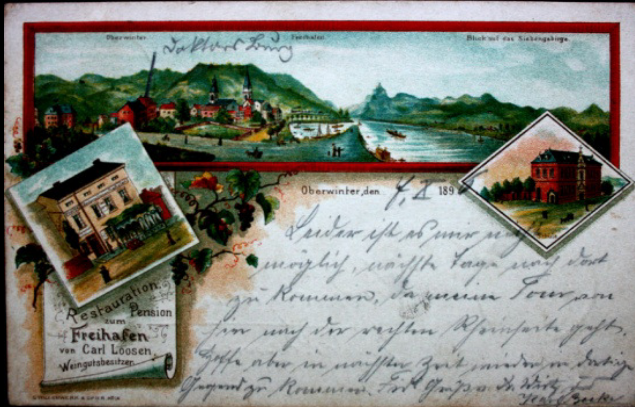 Oberwinter. Freihafen Blick auf das Siebengebirge.
Doktors Burg
Oberwinter, den 4. X 189
Leider ist es mir
möglich, nächste Tage nach dort
zu kommen, da meine Tour von
hier nach der rechten Rheinseite geht.
Hoffe aber in nächster Zeit wieder in dortige
Gegend zu kommen.
Restauration
zum Pension
Freihafen
von Carl Loosen
Weingutsbesitzer.